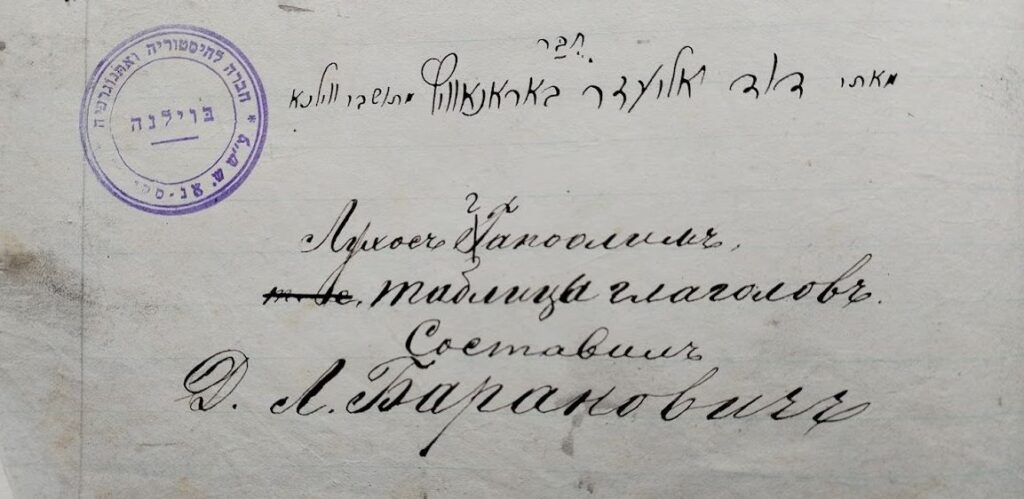 חברה להיסטוריה ואתנוגרפיה * ע״ש ש. אנ-סקי
בוילנה
חבר
מאתי דוד אליעזר באראנאוויץ מתושבי ווילנא
Лухосъ Гапоолимъ,
т. е. таблица глаголовъ.
Составилъ
Д. Л. Барановичъ